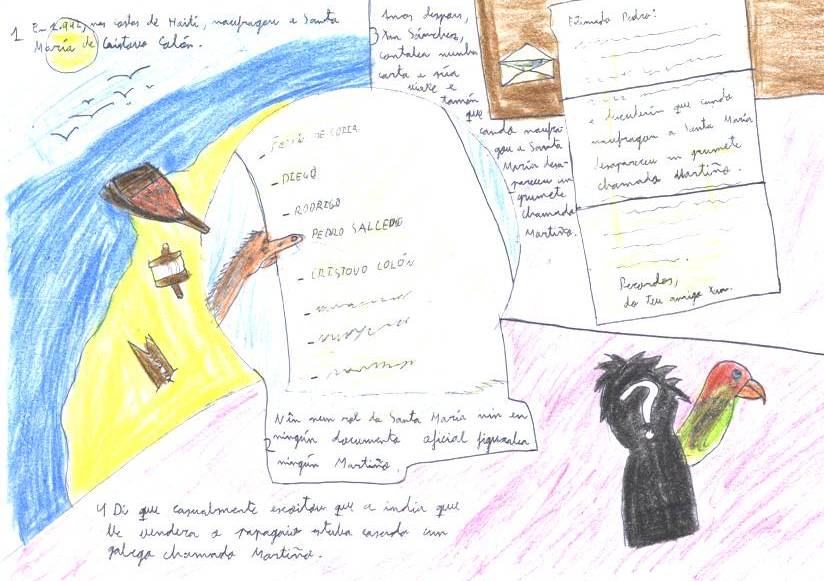 1 En 1.492, nas costas de Haití, naufragou a Santa
María de Cristovo Colón.
- PEDRO SALCEDO
- CRISTOVO COLÓN
- RODRIGO
- DIEGO
2 Nin nun rol da Santa María nin en
ningún documento oficial figuraba
ningún Martiño.
3 Anos despois,
Xan Sánchez,
contaba nunha
carta a súa
viaxe e
tamén
que
cando naufra-
gou a Santa
María desa-
pareceu un
grumete
chamado
Martiño.
Estimado Pedro:
e descubrín que cando
naufragou a Santa María
desapareceu un grumete
chamado Martiño.
Recordos,
do teu amigo Xan.
?
4 Di que casualmente escoitou que a india que
lle vendera o papagaio estaba casada cun
galego chamado Martiño.